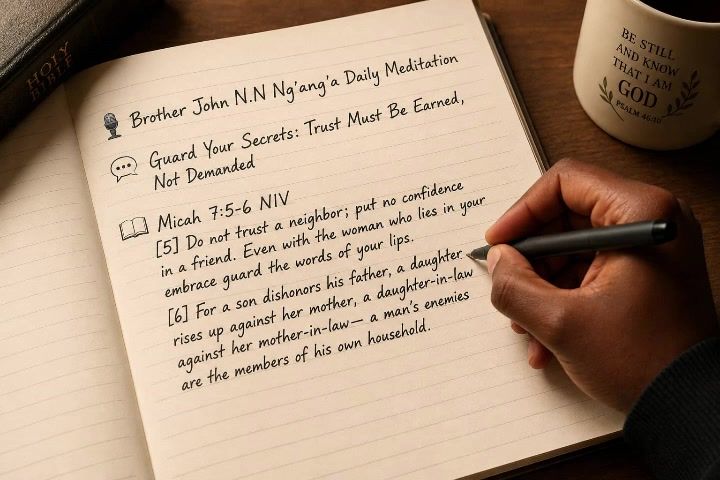 HOLY
BIBLE
Brother John N.N Ng'ang'a Daily Meditation
Guard Your Secrets: Trust Must Be Earned,
Not Demanded
Micah 7:5-6 NIV
[5] Do not trust a neighbor; put no confidence
in a friend. Even with the woman who lies in your
embrace guard the words of your lips.
[6] For a son dishonors his father, a daughter
rises up against her mother, a daughter-in-law
against her mother-in-law— a man's enemies
are the members of his own household.
BE STILL
AND KNOW
THAT I AM
GOD
PSALM 46:10